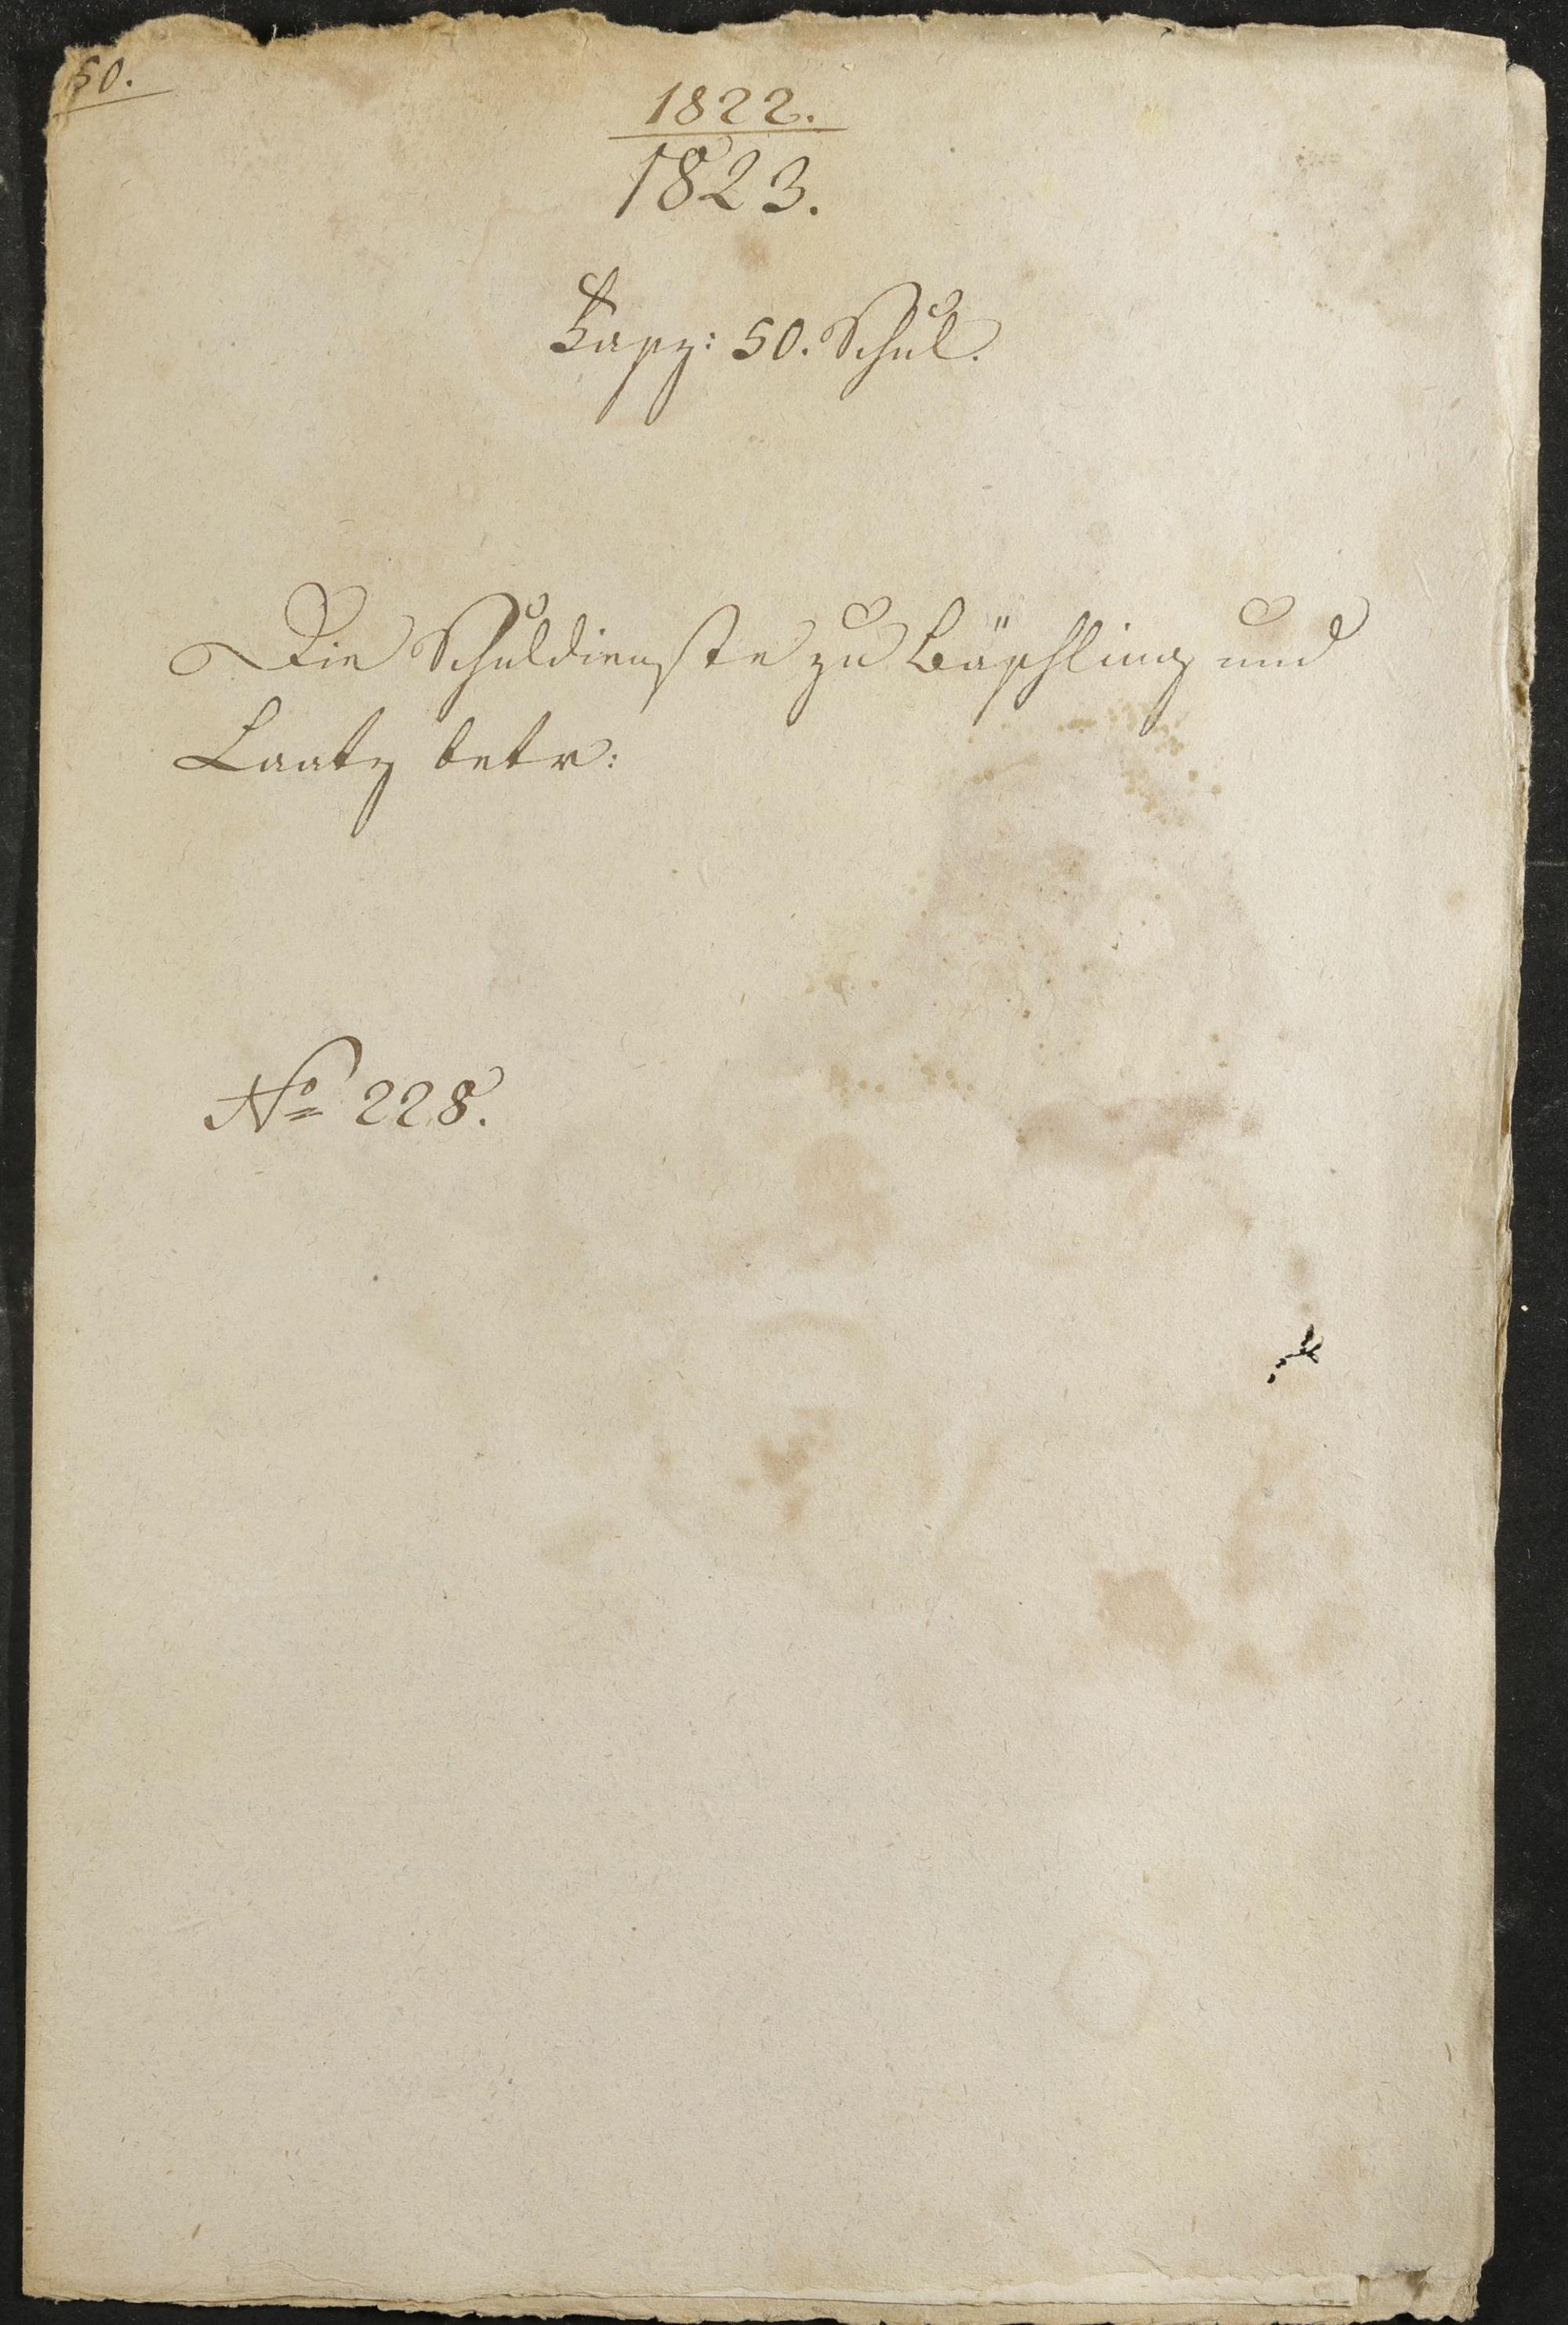 50.
1822.
1823.
Fasz: 50. Schul.
Die Schuldienste zu Bäschling und
Laatz betr:
No 228.